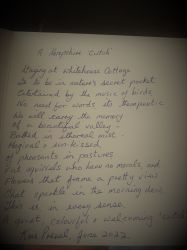 A Hampshire 'Cwtch'
Staying at Whitehouse Cottage
Is to be in nature's secret pocket
Entertained by the music of birds,
No need for words its therapeutic
We will carry the memory
of a beautiful valley -
Bathed in ethereal mist -
Magical + sun-kissed,
of pheasants in pastures
And squirrels who have no morals, and
Flowers that frame a pretty view
That sparkle in the morning dew,
This is in every sense
A quiet, colourful + welcoming 'cwtch'
June 2022.